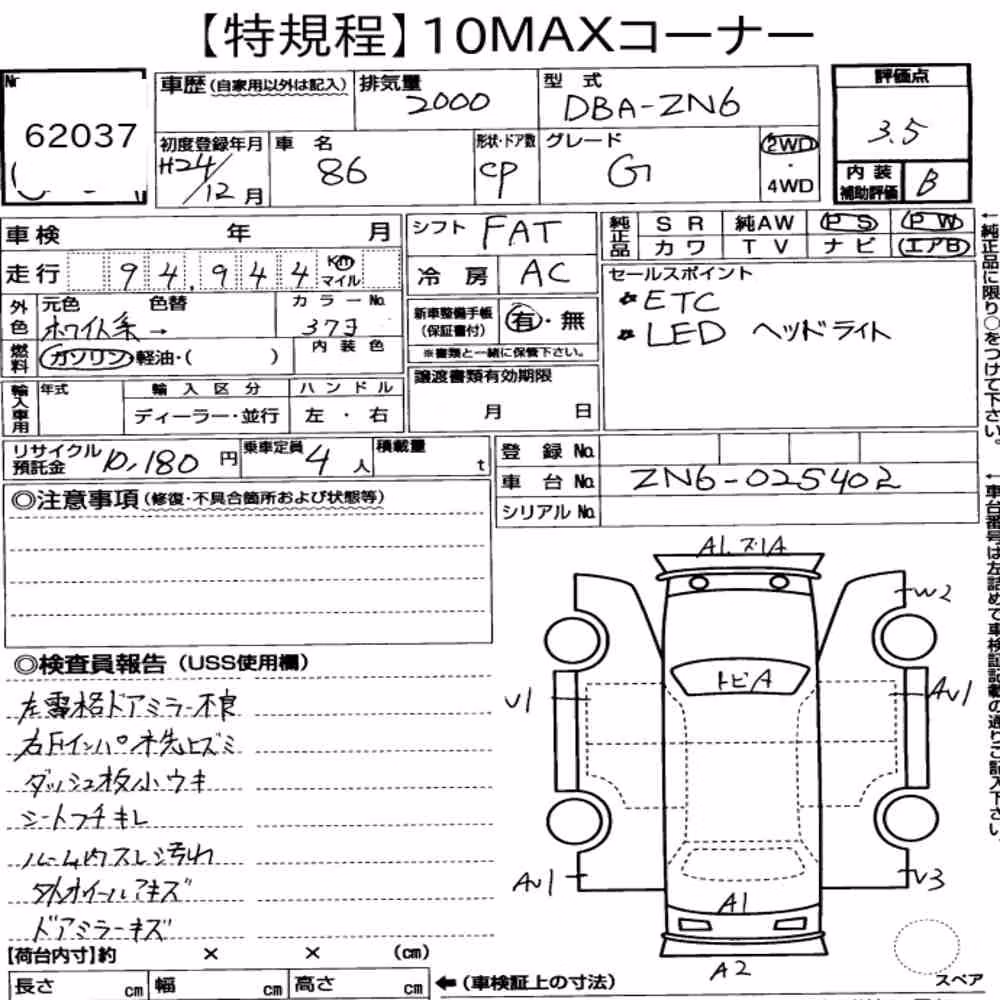 【特規程】10MAXコーナー
Nr 62037
車歴(自家用以外は記入)
排気量 2000
型式 DBA-ZN6
評価点 3.5
初度登録年月 H24/12月
車名 86
形状・ドア数 CP
グレード G
2WD・4WD
内装補助評価 B
車検 年 月
シフト FAT
純正品 SR 純AW PS PW
カワ TV ナビ エアB
走行 94,944 Km マイル
冷房 AC
セールスポイント
☆ETC
☆LED ヘッドライト
外色 元色 色替 カラーNo.
ホワイト系→ 37J
内装色
新車整備手帳(保証書付) 有・無
※書類と一緒に保管下さい。
燃料 ガソリン 軽油・( )
譲渡書類有効期限
月 日
輸入車用 年式 輸入区分 ハンドル
ディーラー・並行 左・右
リサイクル預託金 10,180円
乗車定員 4人
積載量 t
登録No.
車台No. ZN6-025402
シリアルNo.
←純正品に限り○をつけて下さい。
←車台番号は左詰めで車検証記載の通りご記入下さい。
◎注意事項(修復・不具合箇所および状態等)
◎検査員報告(USSS使用欄)
左電格ドアミラー不良
右Fインパネ先上ズミ
ダッシュ板小ウキ
シートフチキレ
ルーム内スレ汚れ
外ホイールキズ
ドアミラーキズ
A1.ズ1A
W2
トビA
U1
AU1
AU1
U3
A1
A2
スペア
【荷台内寸】約 × × (cm)
長さ cm 幅 cm 高さ cm
←(車検証上の寸法)